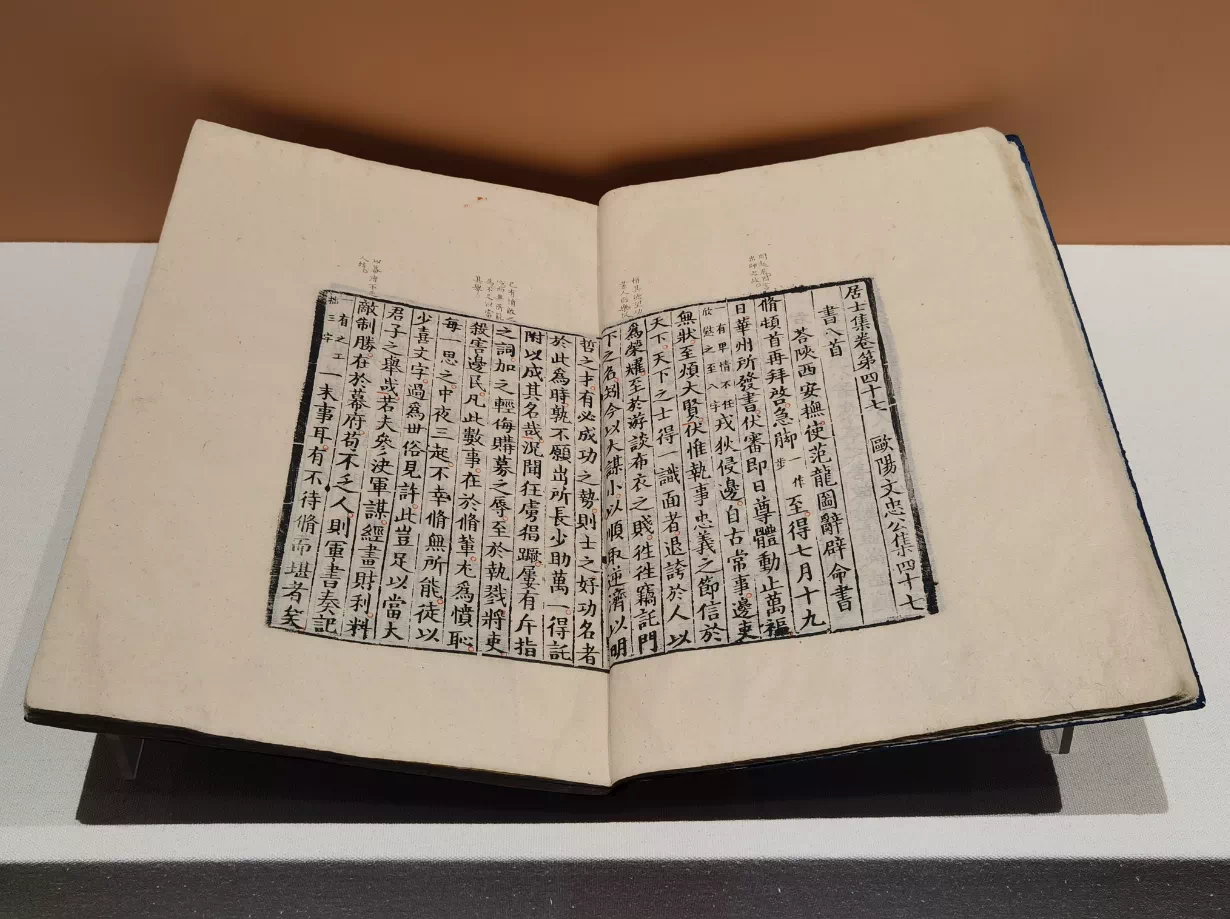 居士集卷第四十七　歐陽文忠公集四十七
書八首
荅陝西安撫使范龍圖辭辟命書
脩頓首再拜啓急脚一作步至得七月十九
日華州所發書伏審即日尊體動止萬福
一有卑情不任欣慰之至八字戎狄侵邊自古常事邊吏
無狀至煩大賢伏惟執事忠義之節信於
天下天下之士得一識面者退誇於人以
為榮耀至於游談布衣之賤徃徃竊託門
下之名矧今以大謀小以順取逆濟以明
哲之才有必成功之勢則士之好功名者
於此為時孰不願出所長少助萬一得託
附以成其名哉況聞狂虜猖蹶屢有斥指
之詞加之輕侮購募之辱至於執戮將吏
殺害邊民凡此數事在於脩輩尤為憤恥
每一思之中夜三起不幸脩無所能徒以
少喜文字過為世俗見許此豈足以當大
君子之舉哉若夫參決軍謀經畫財利料
敵制勝在於幕府苟不乏人則軍書奏記
一有之工拙三字一末事耳有不待脩而堪者矣